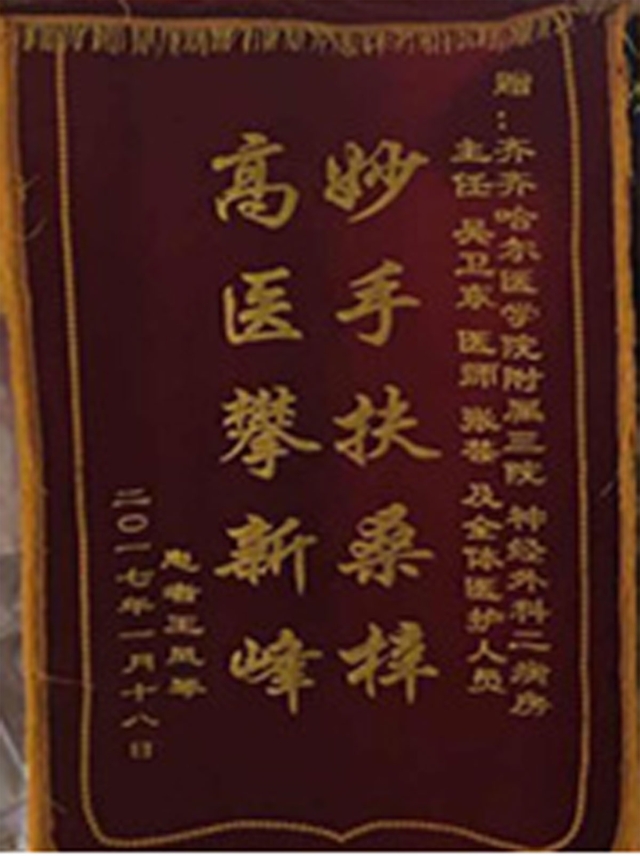 赠：齐齐哈尔医学院附属三院 神经外科二病房
主任 吴卫东 医师 张 及全体医护人员
妙手扶桑梓
高医攀新峰
患者王凤琴
二〇一七年一月十八日